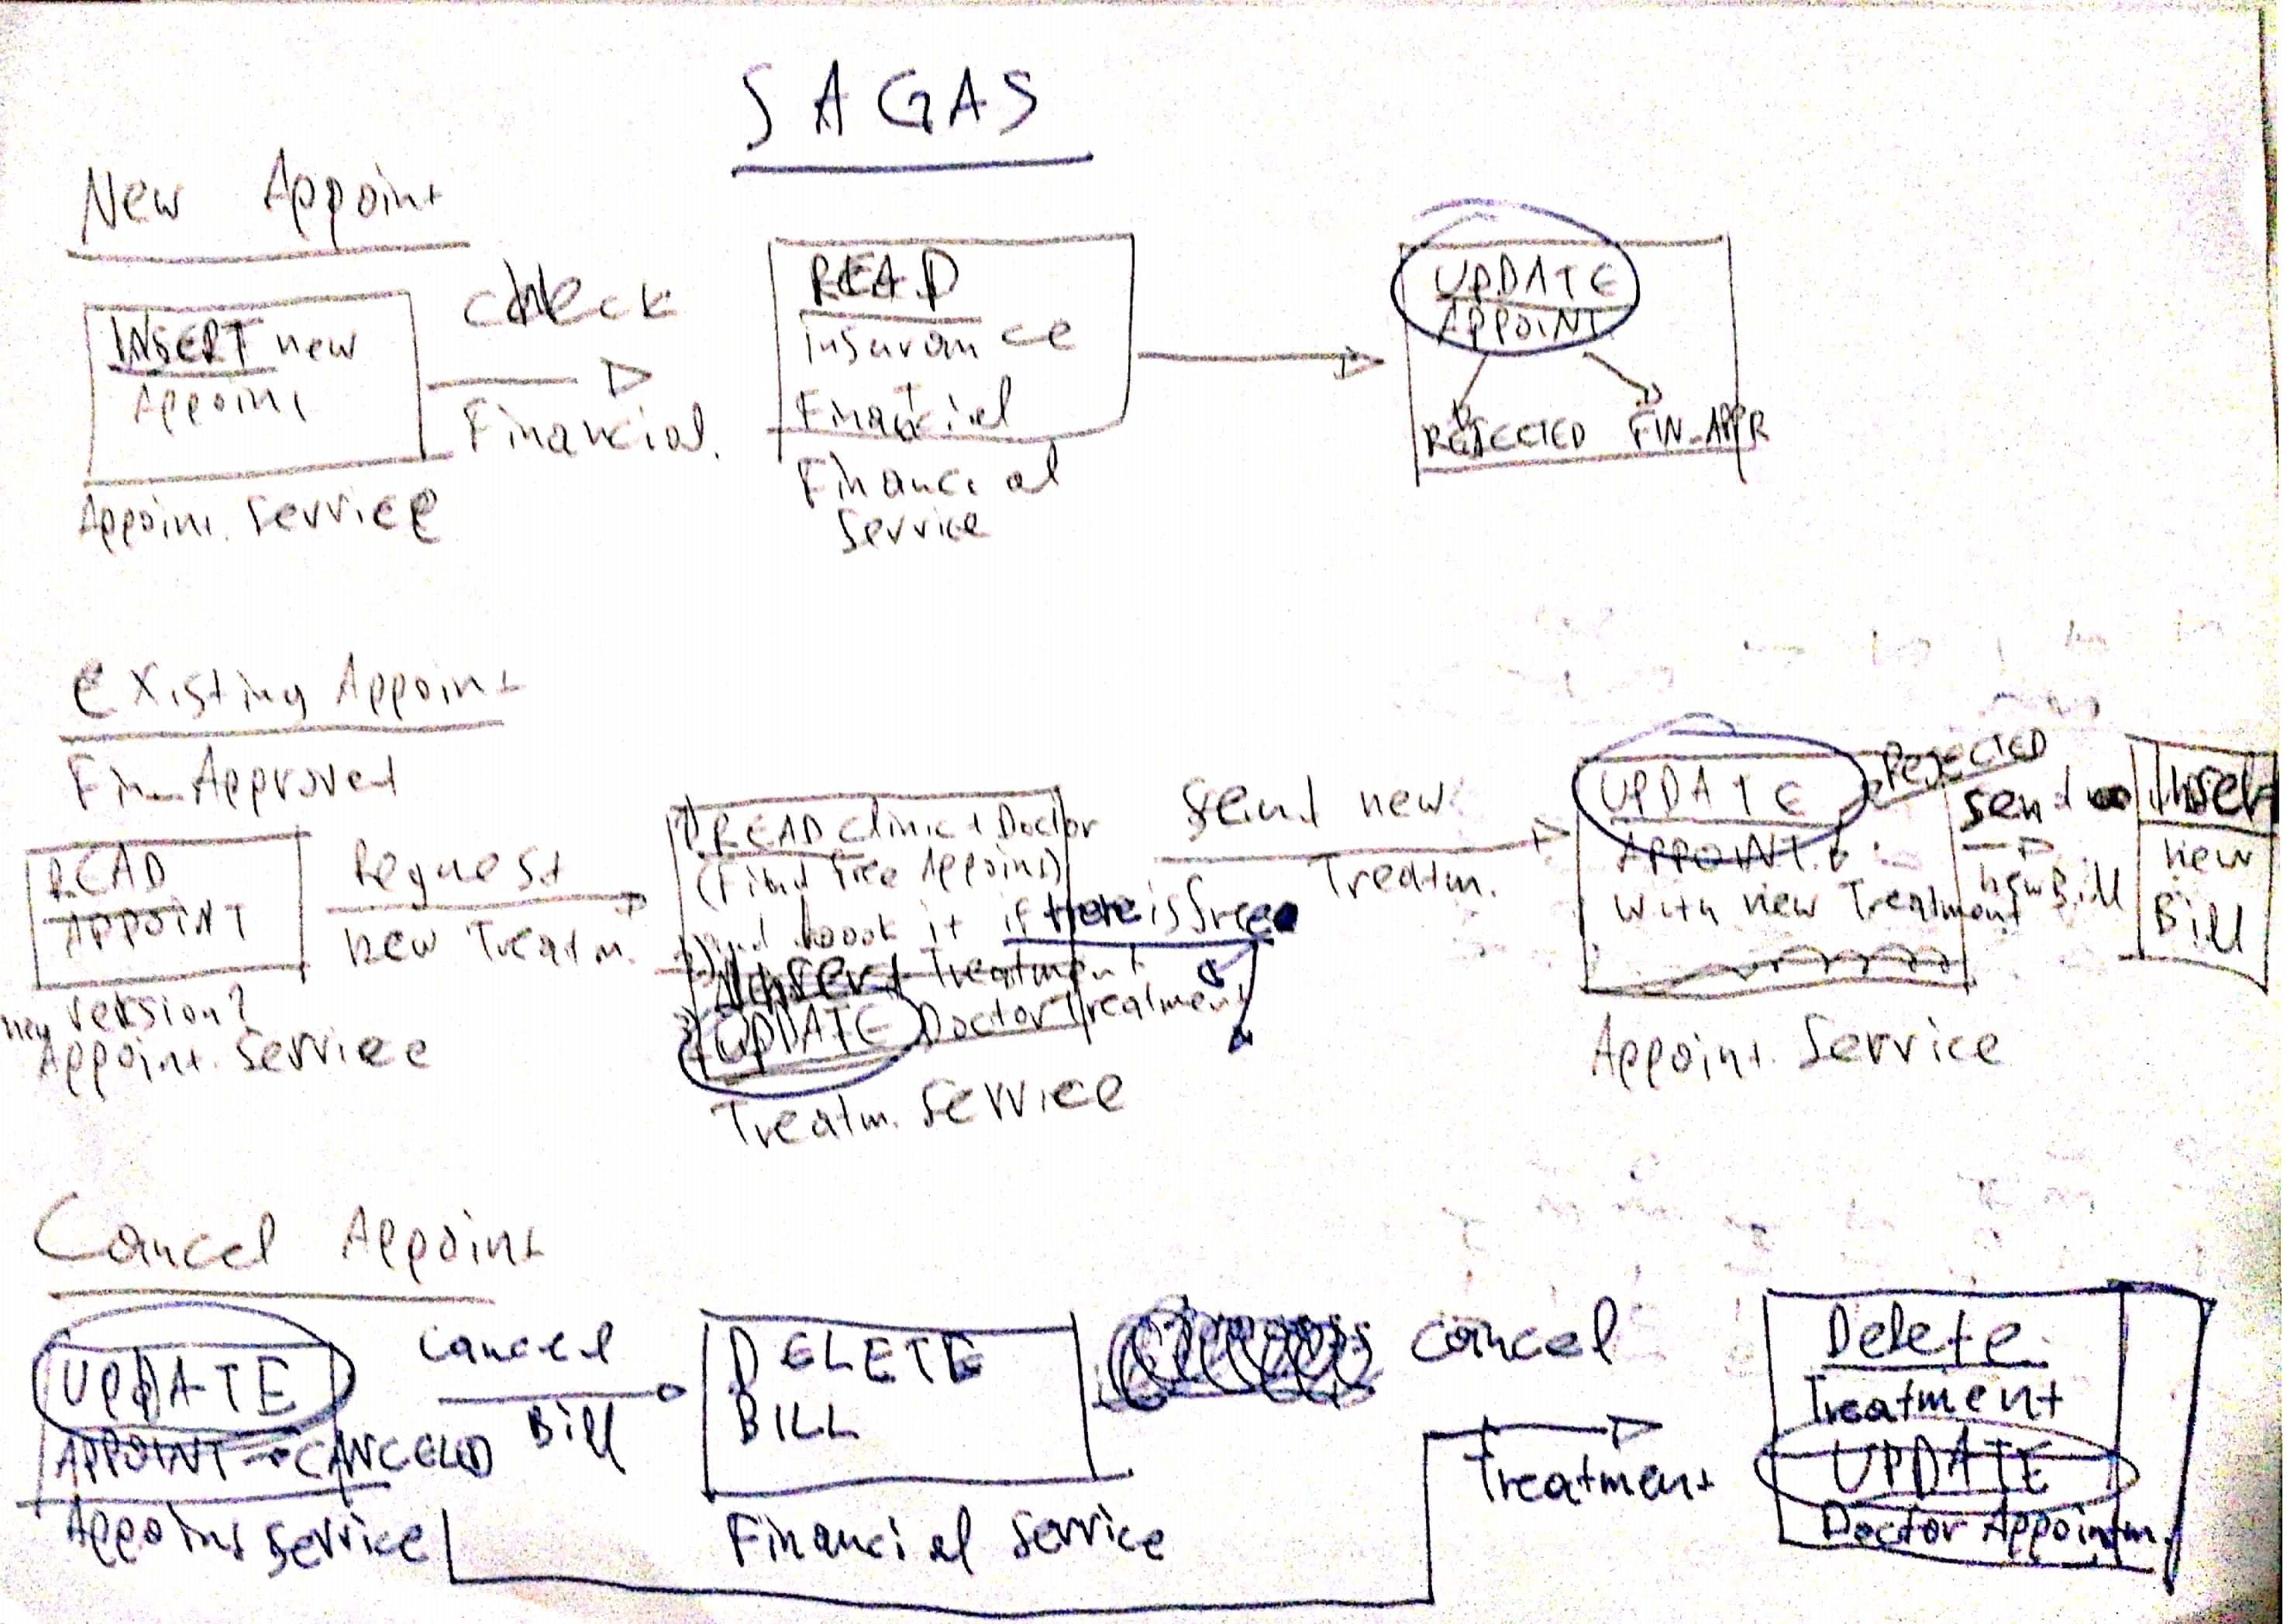 SAGAS
New Appoint
INSERT new
Appoint
Appoint. Service
check
Financial.
READ
insurance
+
Financial
Financial
Service
UPDATE
APPOINT
REJECTED FIN-APPR
Existing Appoint
Fin_Approved
READ
APPOINT
version?
new
Appoint. Service
Request
new Treatm.
1) READ Clinic + Doctor
(Find free Appoint)
and book it if there is free
2) Insert Treatment
3) UPDATE Doctor Treatment
Treatm. Service
Send new
Treatm.
UPDATE
REJECTED
APPOINT.
with new Treatment
Appoint. Service
send
new Bill
Insert
new
Bill
Cancel Appoint
UPDATE
APPOINT → CANCELED
Appoint Service
cancel
Bill
DELETE
BILL
Financial Service
cancel
Treatment
Delete
Treatment
UPDATE
Doctor Appointm.